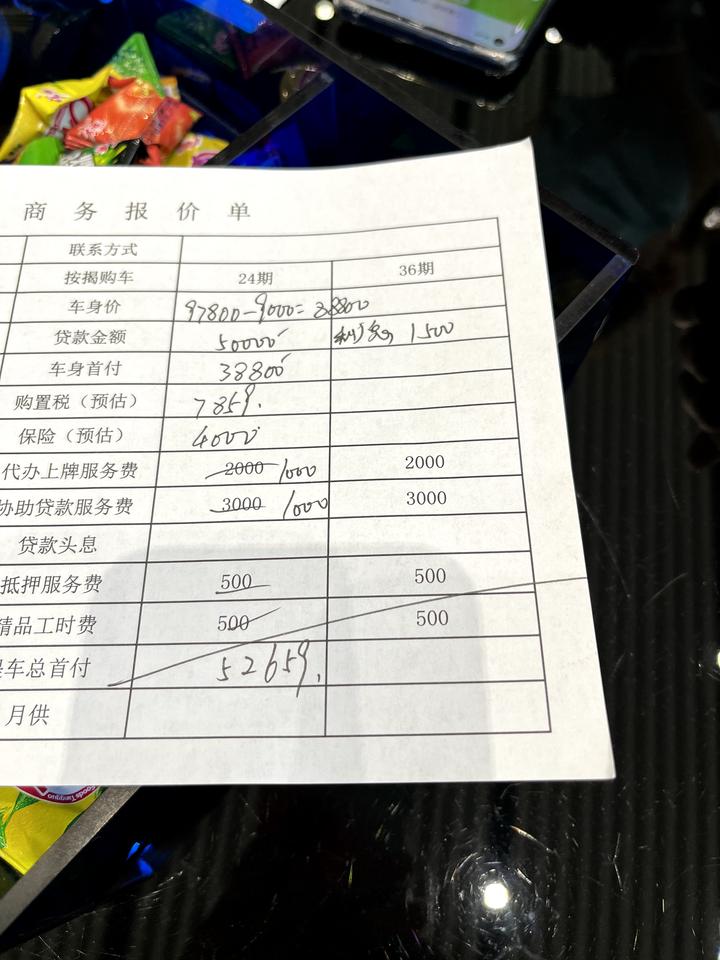 商务报价单
联系方式
按揭购车 24期 36期
车身价 97800-9000=88800
贷款金额 50000 利息 1500
车身首付 38800
购置税（预估） 7859.
保险（预估） 4000
代办上牌服务费 2000 1000 2000
协助贷款服务费 3000 1000 3000
贷款头息
抵押服务费 500 500
精品工时费 500 500
车总首付 52659.
月供
Foods Tangguo